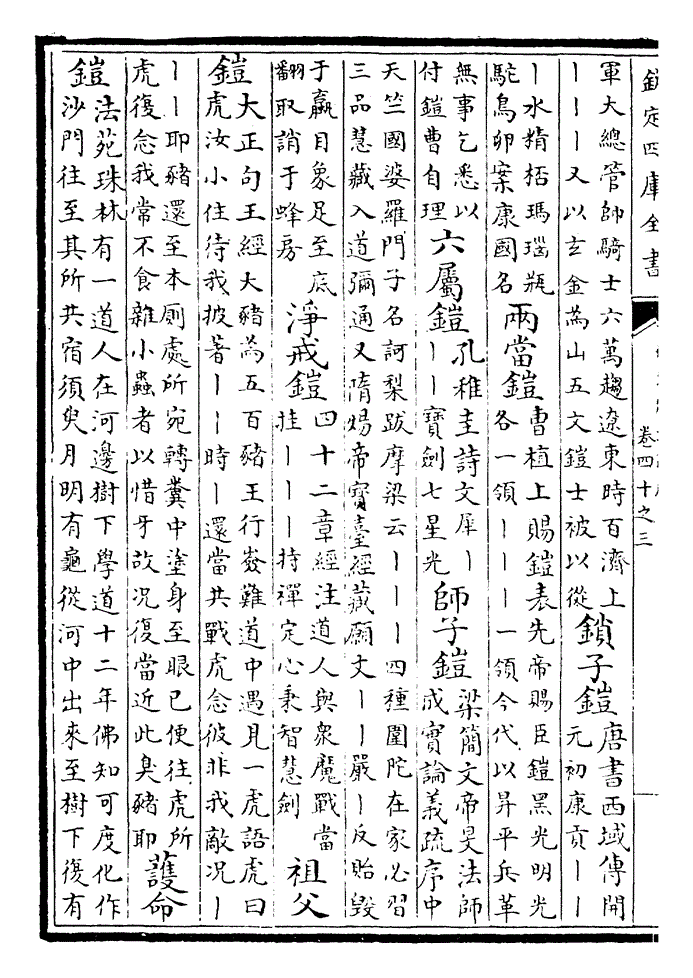 欽定四庫全書
卷四十之三
軍大總管帥騎士六萬趨遼東時百濟上
｜｜｜又以玄金為山五文鎧士被以從
鎖子鎧
唐書西域傳開
元初康貢｜｜
｜水精桮瑪瑙瓶
駝鳥卵案康國名
兩當鎧
曹植上賜鎧表先帝賜臣鎧黑光明光
各一領｜｜｜一領今代以昇平兵革
無事乞悉以
付鎧曹自理
六屬鎧
孔稚圭詩文犀｜
｜｜寶劍七星光
師子鎧
梁簡文帝旻法師
成實論義疏序中
天竺國婆羅門子名訶梨跋摩梁云｜｜｜四種圍陀在家必習
三品慧藏入道彌通又隋煬帝寶臺經藏願文｜｜嚴｜反貽毀
于羸目象足至底
翻取誚于蜂房
淨戒鎧
四十二章經注道人與衆魔戰當
挂｜｜｜持禪定心秉智慧劍
祖父
鎧
大正句王經大豬為五百豬王行嶮難道中遇見一虎語虎曰
虎汝小住待我披著｜｜時｜還當共戰虎念彼非我敵况｜
｜｜耶豬還至本厠處所宛轉糞中塗身至眼已便往虎所
虎復念我常不食雜小蟲者以惜牙故况復當近此臭豬耶
護命
鎧
法苑珠林有一道人在河邊樹下學道十二年佛知可度化作
沙門往至其所共宿須臾月明有龜從河中出來至樹下復有